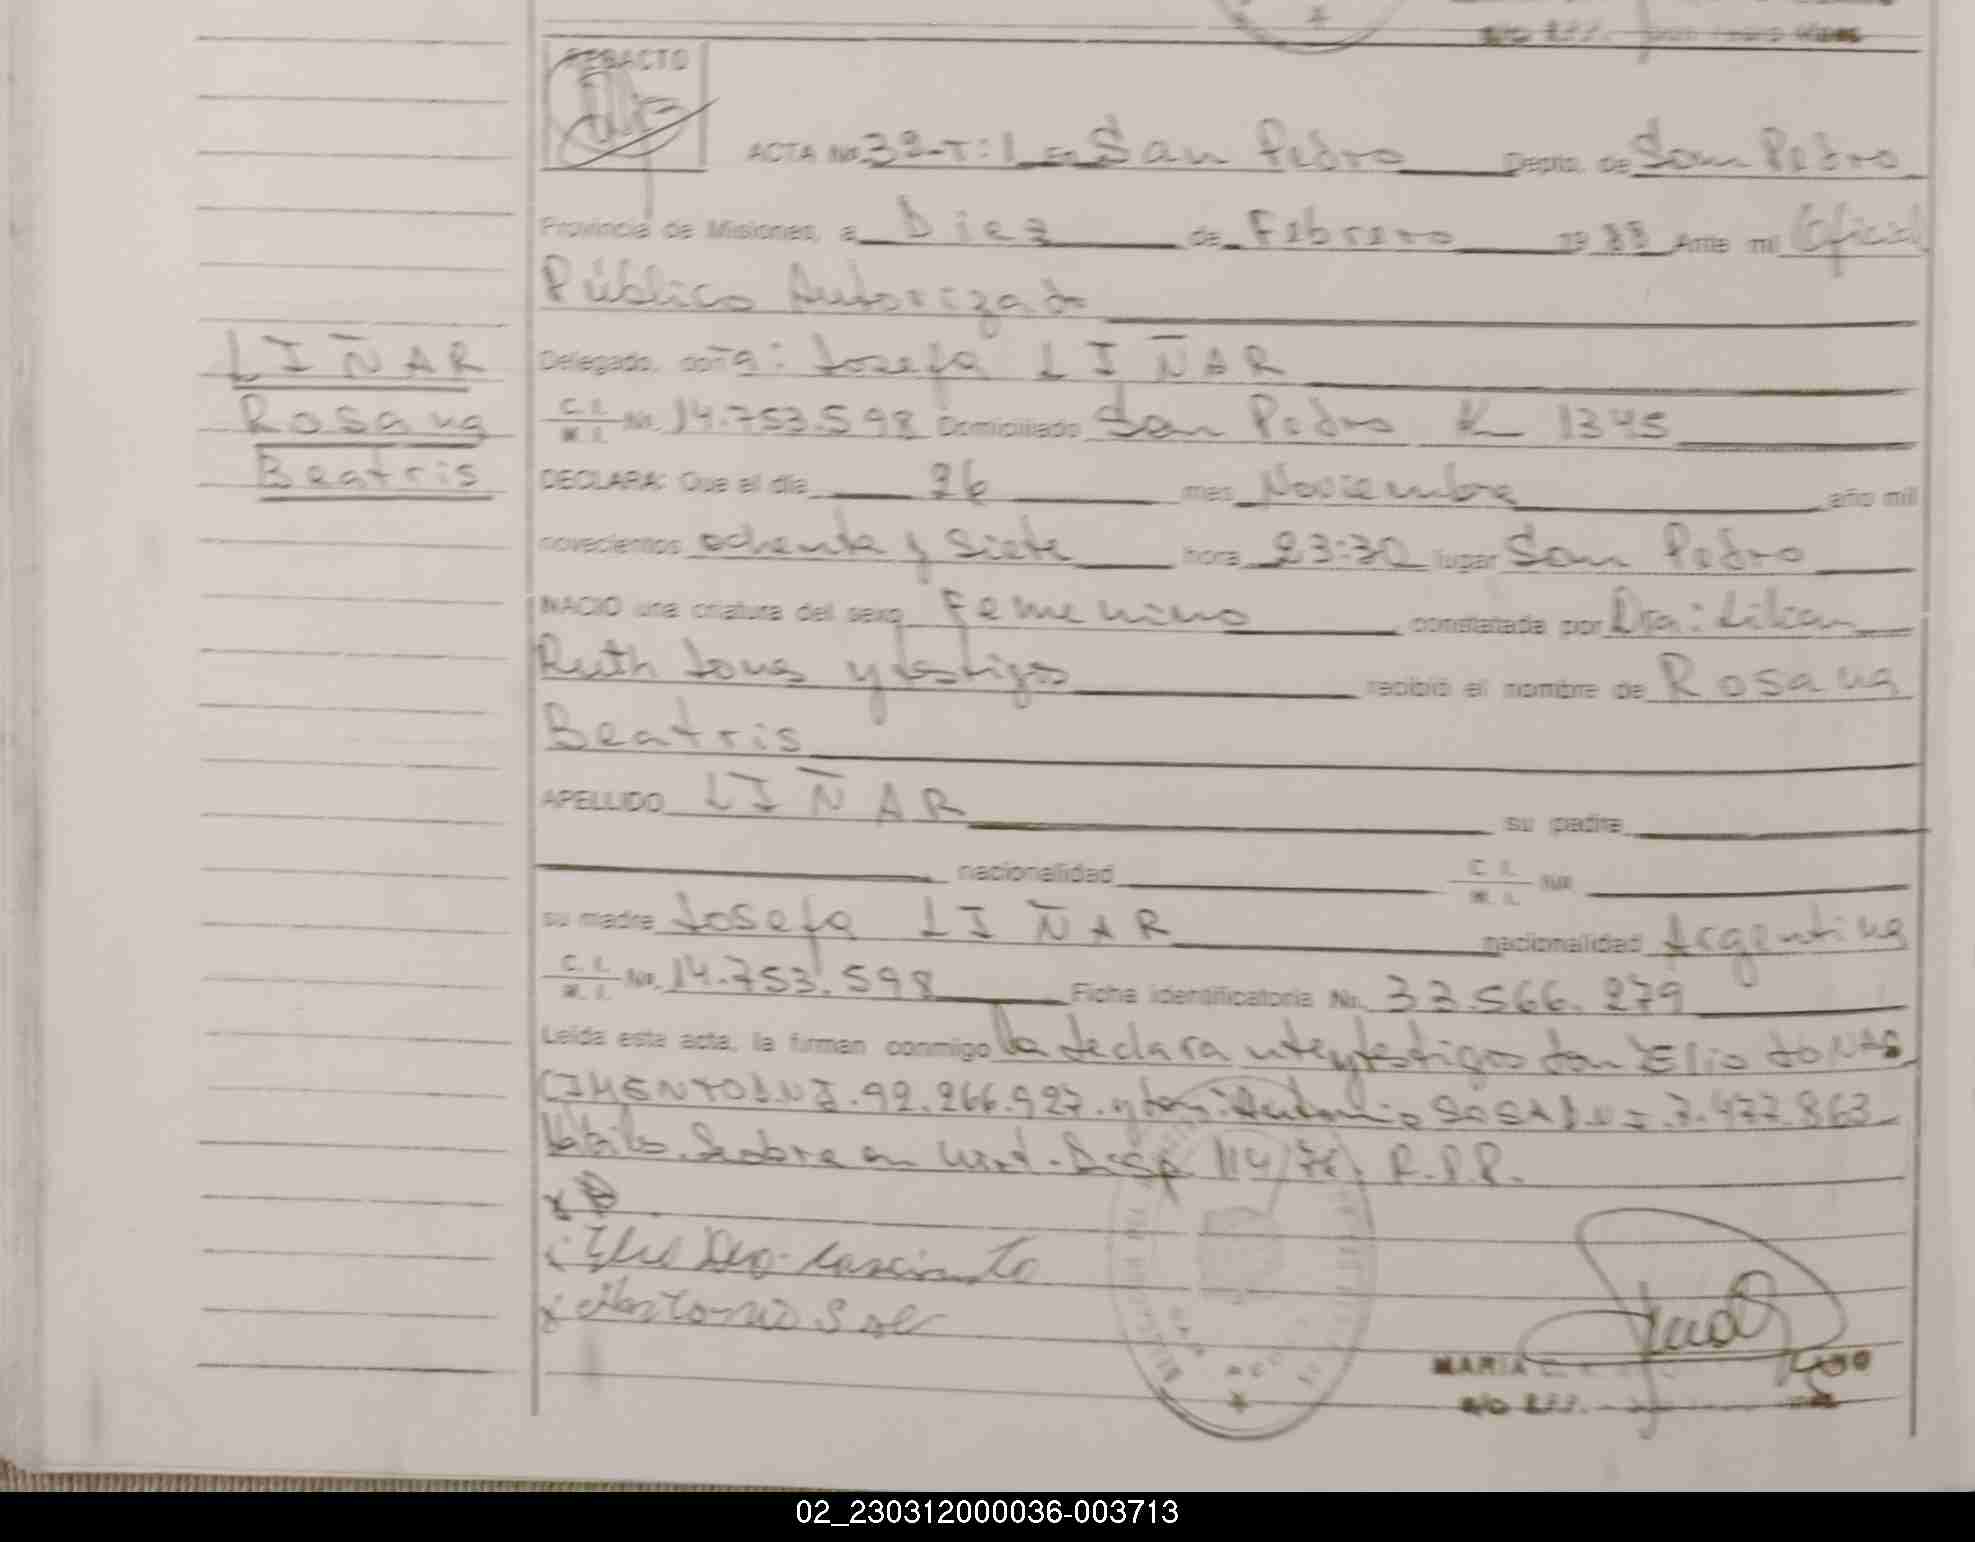 REDACTO
ACTA No. 39-T:1 En San Pedro Depto. de San Pedro
Provincia de Misiones, a Diez de Febrero 1988 Ante mi Oficial
Público Autorizado
LIÑAR
Delegado, doña: Josefa LIÑAR
Rosana
C. I. M. I. No. 14.753.598 Domiciliado San Pedro K 1345
Beatris
DECLARA: Que el día 26 mes Noviembre año mil
novecientos ochenta y siete hora 23:30 lugar San Pedro
NACIO una criatura del sexo Femenino constatada por Dra: Lilian
Ruth Jones y testigos recibió el nombre de Rosana
Beatris
APELLIDO LIÑAR su padre
nacionalidad C. I. M. I. No.
su madre Josefa LIÑAR nacionalidad Argentina
C. I. M. I. No. 14.753.598 Ficha identificatoria No. 33.566.279
Leída esta acta, la firman conmigo la declara nte y testigos don Elio do NAS
CIMENTO D.N.I. 92.266.927. y don: Antonio SOSA D.N.I. 7.477.863
114/76 R.P.P.
Antonio
MARIA